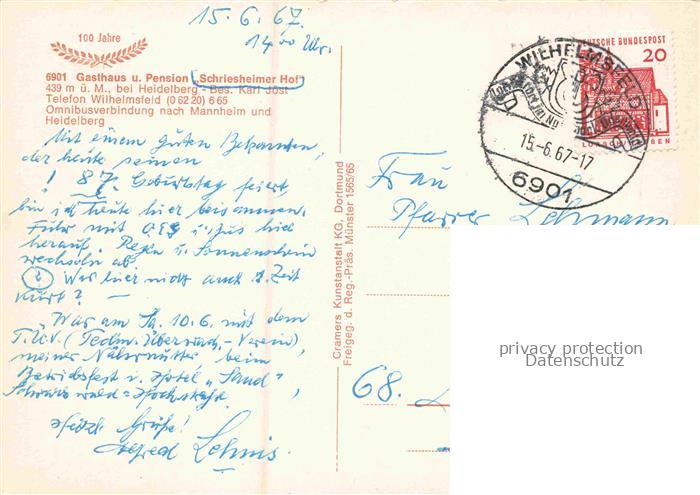 15.6.67
14 00 Uhr.
100 Jahre
6901 Gasthaus u. Pension "Schriesheimer Hof"
439 m ü. M., bei Heidelberg - Bes. Karl Jöst
Telefon Wilhelmsfeld (0 62 20) 6 65
Omnibusverbindung nach Mannheim und
Heidelberg
Mit einem guten Bekannten,
der heute seinen
! 87. Geburtstag feiert
bin ich heute hier beisammen.
Fuhr mit OEG u. Bus hier
herauf. Regen u. Sonnenschein
wechseln ab
War hier nicht auch Zeit
Kurt? —
"War am Sa. 10.6. mit dem
T.Ü.V. (Techn. Überwach.-Verein)
meiner beim
Betriebsfest i. Hotel "Sand"
Schwarzwald-Hochstraße
Herzl. Grüße!
Alfred
Cramers Kunstanstalt KG, Dortmund
Freigeg. d. Reg.-Präs. Münster 1565/65
DEUTSCHE BUNDESPOST
20
LORSCH/HESSEN
WILHELMSFELD
15.-6.67-17
6901
Frau
Pfarrer Lehmann
68.
privacy protection
Datenschutz